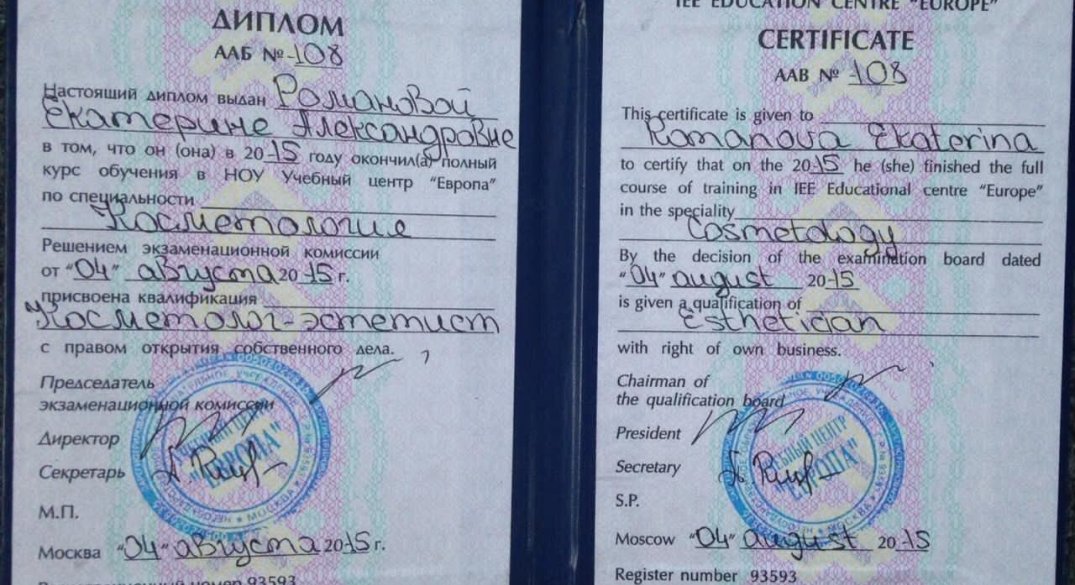 ДИПЛОМ
ААБ № 108
Настоящий диплом выдан Романовой
Екатерине Александровне
в том, что он (она) в 2015 году окончил(а) полный
курс обучения в НОУ Учебный центр "Европа"
по специальности
Косметология
Решением экзаменационной комиссии
от "04" августа 2015 г.
присвоена квалификация
Косметолог-эстетист
с правом открытия собственного дела.
Председатель
экзаменационной комиссии
Директор
Секретарь
М.П.
Москва "04" августа 2015 г.
93593
IEE EDUCATION CENTRE "EUROPE"
CERTIFICATE
AAB № 108
This certificate is given to
Romanova Ekaterina
to certify that on the 2015 he (she) finished the full
course of training in IEE Educational centre "Europe"
in the speciality
Cosmetology
By the decision of the examination board dated
"04" august 2015
is given a qualification of
Esthetician
with right of own business.
Chairman of
the qualification board
President
Secretary
S.P.
Moscow "04" august 2015
Register number 93593